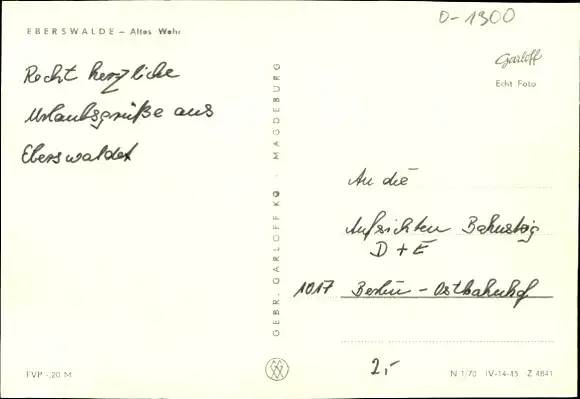 O-1300
EBERSWALDE – Altes Wehr
Garloff
Echt Foto
Recht herzliche
Urlaubsgrüße aus
Eberswalde
GEBR. GARLOFF KG · MAGDEBURG
An die
Aufsichten Bahnsteig
D + E
1017 Berlin - Ostbahnhof
2,-
EVP -,20 M
N 1/70 IV-14-45 Z 4841